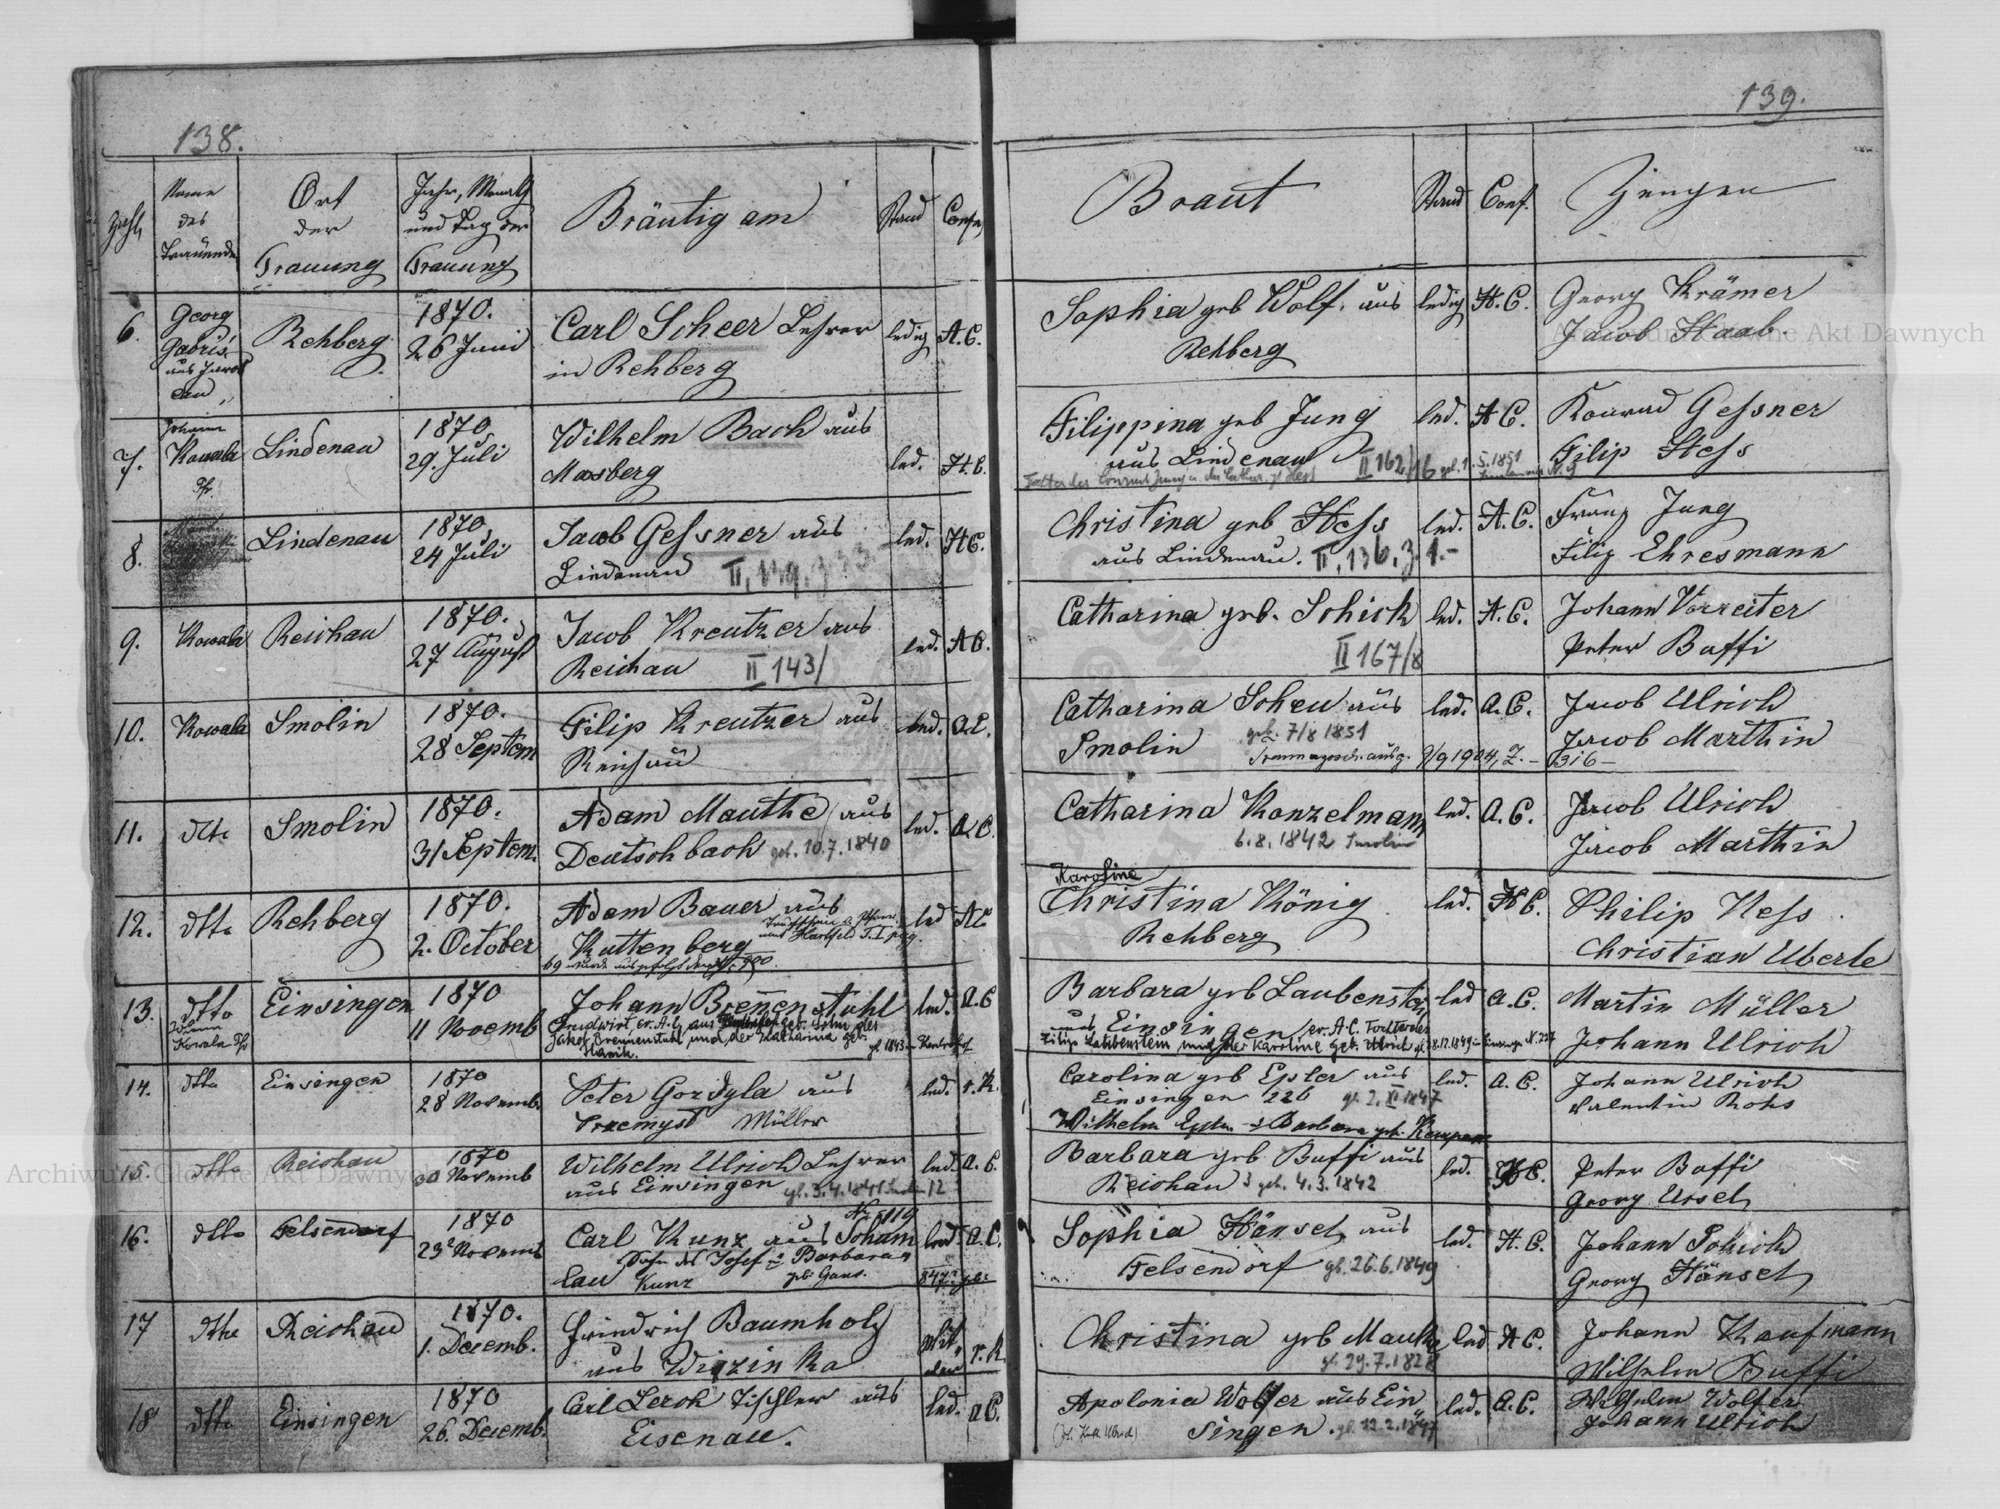 138.
139.
Zahl
Name
des
Trauenden
Ort
der
Trauung
Jahr, Monath
und Tag der
Trauung
Bräutigam
Stand
Conf.
Braut
Stand
Conf.
Zeugen
6.
Georg
Gabris
aus
Rehberg
1870.
26 Juni
Carl Scheer Lehrer
in Rehberg
ledig
A.C.
Sophia geb Wolf. aus
Rehberg
ledig
H.C.
Georg Krämer
Jacob Staab.
7.
Johann
Kowala
Pfr.
Lindenau
1870
29. Juli
Wilhelm Bach aus
Mosberg
led.
H.C.
Filippina geb Jung
aus Lindenau II 162/16 geb. 1.5.1851
led.
A C.
Konrad Gessner
Filip Hess
8.
Lindenau
1870
24 Juli
Jacob Gessner aus
Lindenau
led.
H C.
Christina geb Hess
aus Lindenau. II, 136, z. 1.-
led.
A. C.
Franz Jung
Filip Ehresmann
9.
Kowala
Reichau
1870.
27 August
Jacob Kreutzer aus
Reichau II 143/
led.
A C.
Catharina geb. Schick
II 167/8
led.
A. C.
Johann Vorreiter
Peter Buffi
10.
Kowala
Smolin
1870.
28 Septem
Filip Kreutzer aus
Reichau
led.
A.C.
Catharina Scheu aus
Smolin geb. 7/8 1851
Trauungssch. ausg. 9/9 1904, Z. – 316 –
led.
A. C.
Jacob Ulrich
Jacob Marthin
11.
dtto
Smolin
1870.
31 Septem.
Adam Mauthe aus
Deutschbach geb. 10.7.1840
led.
A C.
Catharina Konzelmann
6.8.1842 Smolin
led.
A. C.
Jacob Ulrich
Jacob Marthin
12.
dtto
Rehberg
1870.
2. October
Adam Bauer aus
Kuttenberg
led
A C
Karoline
Christina König
Rehberg
led.
H C.
Philip Hess
Christian Uberle
13.
dtto
Johann
Kowala Pfr
Einsingen
1870
11 Novemb
Johann Brennenstuhl
Grundwirt, ev. A.C. aus geb. Sohn des
Jakob Brennenstuhl und der Katharina geb.
Hauck.
led.
A. C
Barbara geb Laubenstein
aus Einsingen, ev. A.C. Tochter des
Filipp Laubenstein und der Karoline geb. Ulrich geb. 8.12.1849 in Einsingen N. 227
led
A. C.
Martin Müller
Johann Ulrich
14.
dtto
Einsingen
1870
28 Novemb.
Peter Gozdyla aus
Przemysl Müller
led.
r. K.
Carolina geb Epler aus
Einsingen 226 geb. 2. XI 1847
Wilhelm Epler u Barbara geb. Kemper
led.
A. C.
Johann Ulrich
Valentin Rohs
15.
dtto
Reichau
1870
30 Novemb
Wilhelm Ulrich Lehrer
aus Einsingen geb. 3.4.1841
led.
A. C.
Barbara geb Buffi aus
Reichau geb. 4.3.1842
led.
H C.
Peter Buffi
Georg Ursel
16.
dtto
Felsendorf
1870
23 Novemb
Carl Kunz aus Scham
Nr. 119
Sohn des Josef u Barbara
lau Kunz geb Gans.
led.
A. C.
Sophia Hänsel aus
Felsendorf geb. 26.6.1849
led.
H. C.
Johann Schick
Georg Hänsel
17
dtto
Reichau
1870.
1. Decemb.
Friedrich Baumholz
aus Wiązinka
r. K
Christina geb Mauthe
geb. 29.7.1828
led
A C.
Johann Kaufmann
Wilhelm Buffi
18
dtto
Einsingen
1870
26. Decemb.
Carl Lerch Tischler aus
Eisenau.
led.
A C.
Apolonia Wolfer aus Ein
singen. geb. 12.2.1847
led.
A. C.
Wilhelm Wolfer
Johann Ulrich
Archiwum Główne Akt Dawnych
Archiwum Główne Akt Dawnych